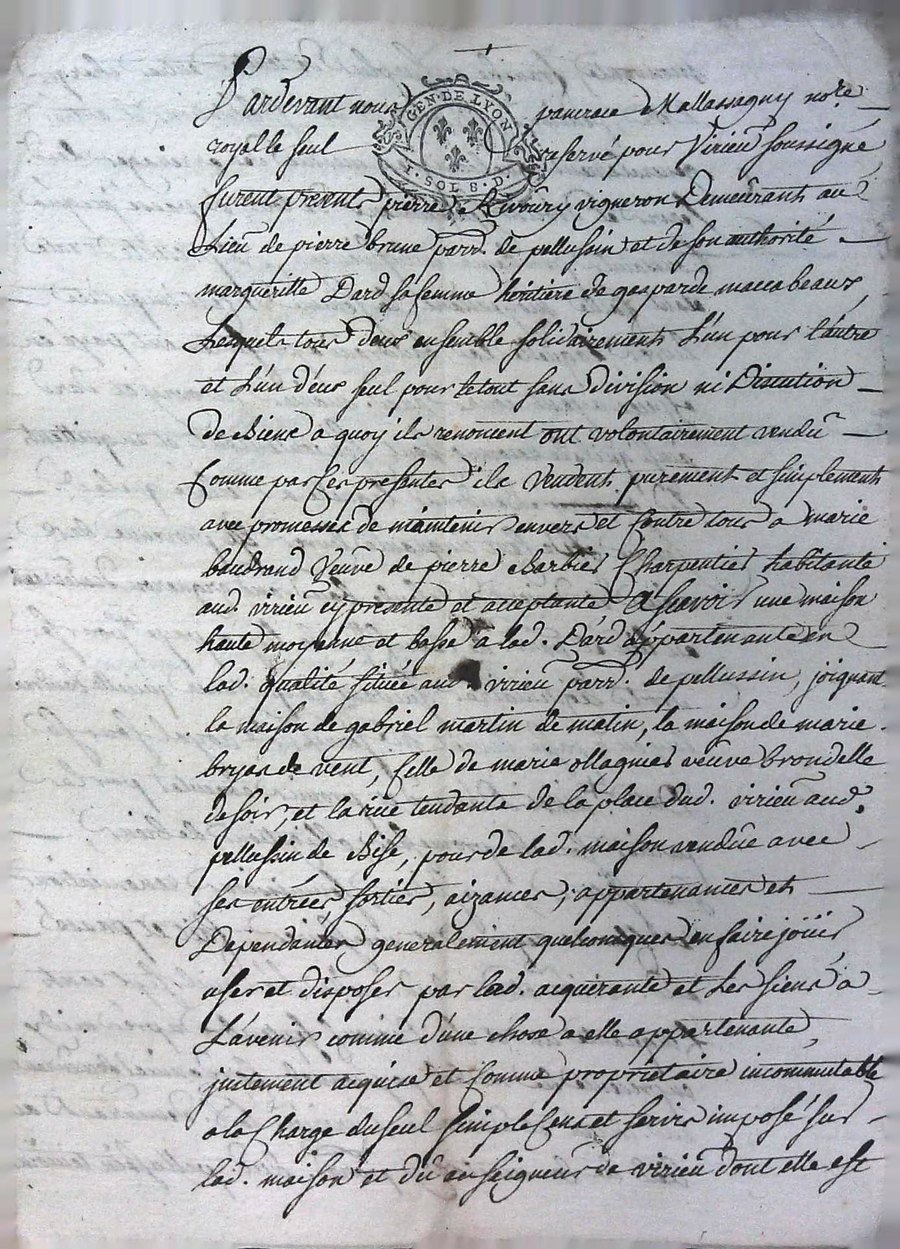 Pardevant nous pancrace Mallassagny no.re
GEN·DE LYON
royalle seul reservé pour Virieu soussigné
I·SOL 8·D·
furent presents pierre Rivoiry vigneron Demeurant au
Lieu de pierre brune parr. de pellussin et de son authorité
margueritte Dard sa femme heritiere de gasparde maccabeaux
Lesquels tous deux ensemble solidairement L'un pour L'autre
et L'un d'eux seul pour le tout sans division ni Discution
de Biens a quoy ils renoncent ont volontairement vendû
Comme par Ces presentes ils Vendent purement et simplement
avec promesses de maintenir envers et Contre tous a marie
baudrand Veuve de pierre Barbier Charpentier habitante
aud. virieu cy presente et acceptante Ascavoir une maison
haute moyenne et basse a lad. Dard appartenante en
lad. qualité située aud. virieu parr. de pellussin, joignant
la maison de gabriel martin de matin, la maison de marie
de vent, Celle de marie ollagnier veuve brondelle
de soir, et la rue tendante de la place dud. virieu aud.
pellussin de Bise, pour de lad. maison vendue avec
ses entrées sorties, aizances, appartenances et
Dependantes generalement quelconques en faire jöüir
user et disposer par lad. acquérante et Les siens a
L'avenir comme d'une chose a elle appartenante,
justement acquise et Comme proprietaire incommutable
a la Charge du seul simple Cens et servis imposé sur
lad. maison et dû au seigneur de virieu dont elle est